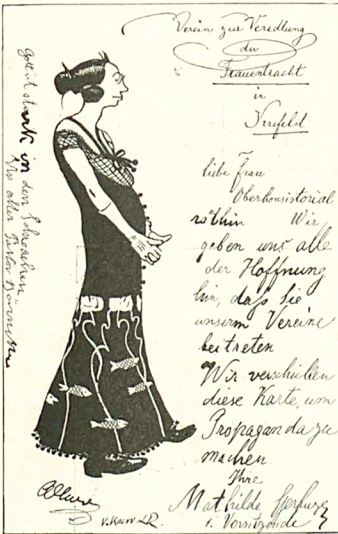 Verein zur Veredlung
der
Frauentracht
in
Krefeld
liebe Frau
Oberkonsistorial
röthin Wir
geben uns alle
der Hoffnung
hin, daß Sie
unserm Vereine
beitreten
Wir verschicken
diese Karte, um
Propaganda zu
machen.
Ihre
Mathilde
1. Vorsitzende
Gott ist stark in den Schwachen
Ihr alter Pastor